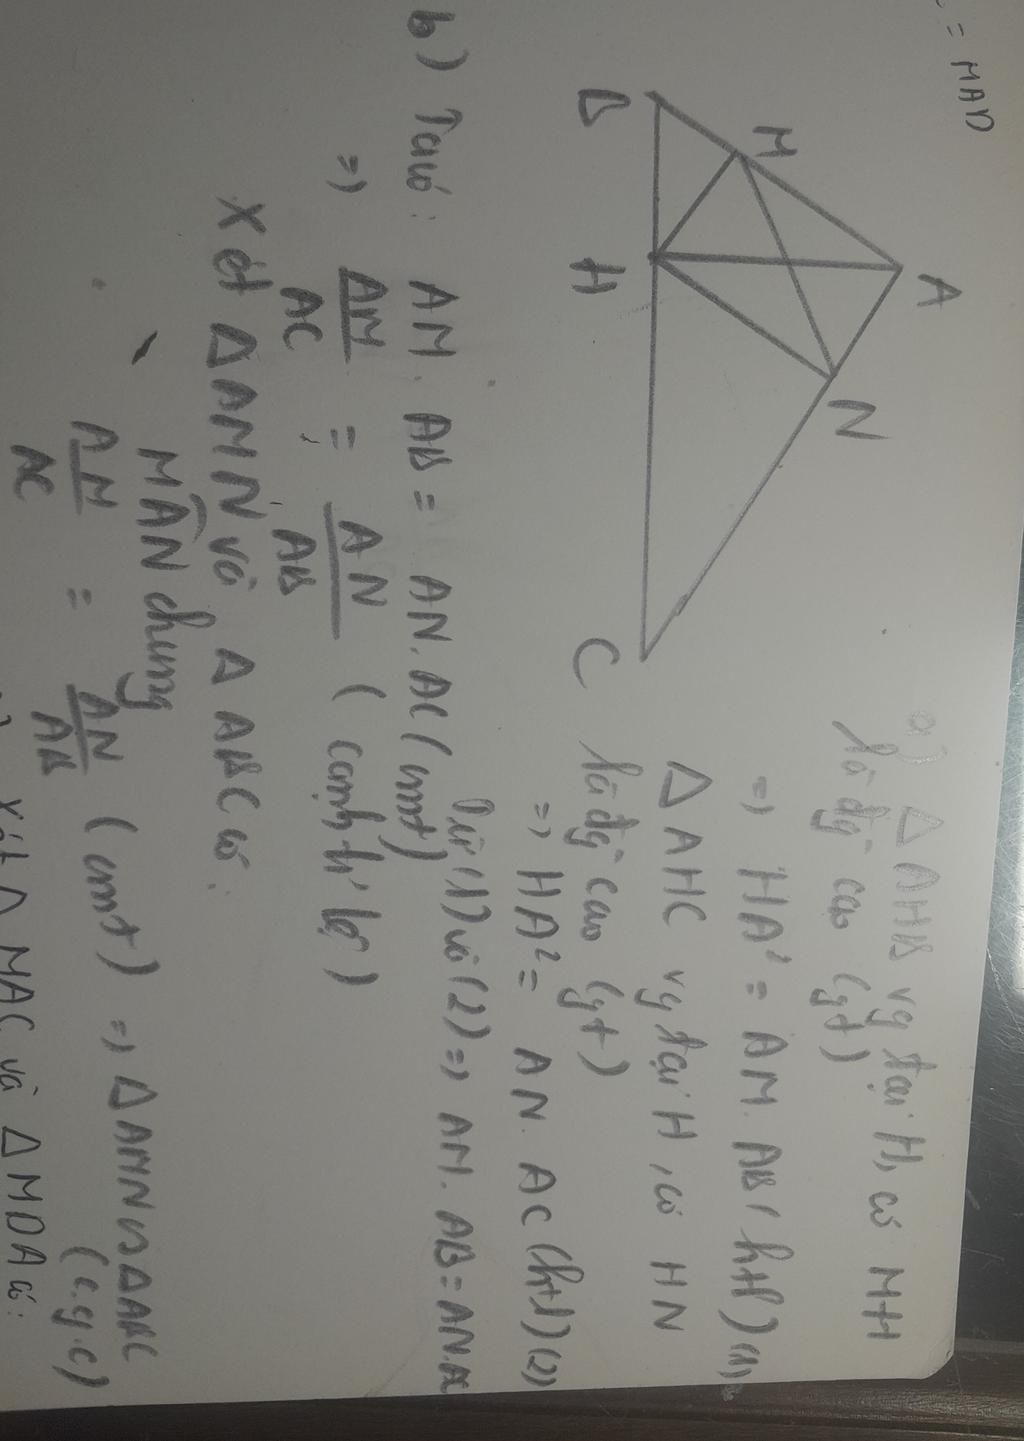 = MAD
A
M
N
B
H
C
a) Δ AHB vg tại H, có MH
là đg cao (gt)
=> HA² = AM. AB (htl) (1)
Δ AHC vg tại H, có HN
là đg cao (gt)
=> HA² = AN. AC (htl) (2)
Từ (1) và (2) => AM. AB = AN.AC
b) Ta có: AM. AB = AN. AC (cmt)
=> AM/AC = AN/AB (cạnh tỉ lệ)
Xét Δ AMN và Δ ABC có:
MÂN chung
AM/AC = AN/AB (cmt) => Δ AMN ᔕ Δ ABC
(c.g.c)
Xét Δ MAC và Δ MDA có: